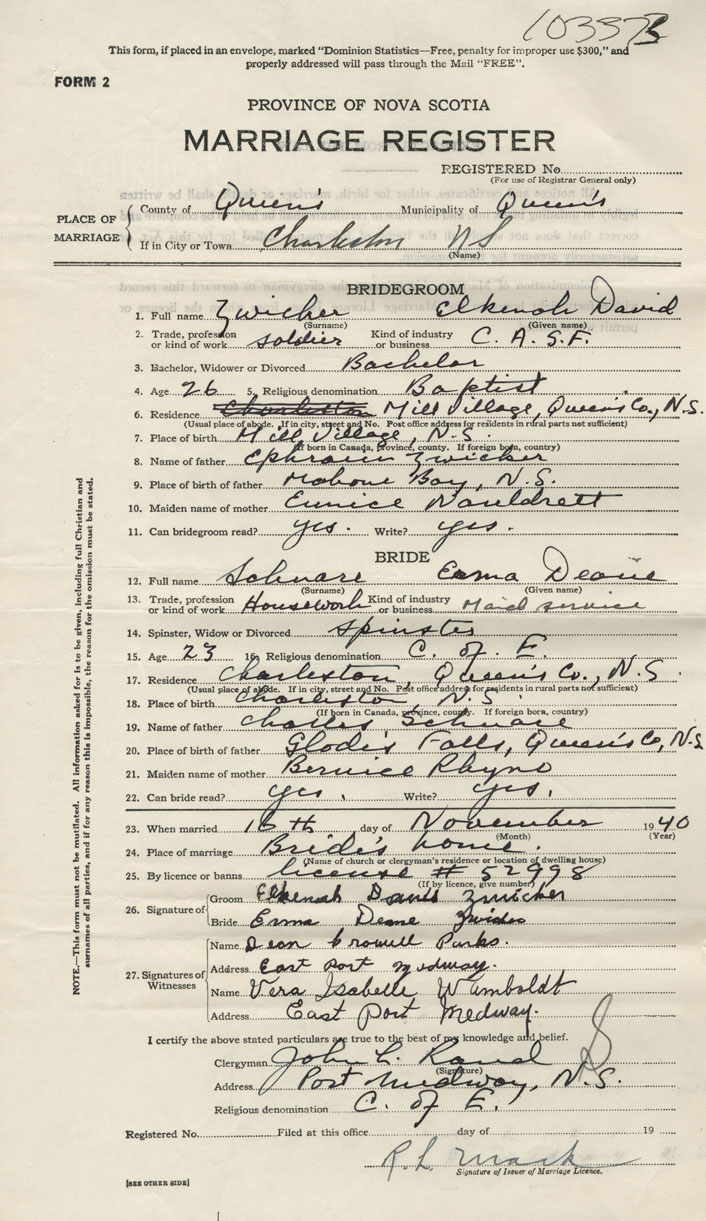 103373
This form, if placed in an envelope, marked "Dominion Statistics—Free, penalty for improper use $300," and
properly addressed will pass through the Mail "FREE".
FORM 2
PROVINCE OF NOVA SCOTIA
MARRIAGE REGISTER
REGISTERED No.
(For use of Registrar General only)
PLACE OF MARRIAGE
County of Queen's Municipality of Queen's
If in City or Town Charleston NS
(Name)
BRIDEGROOM
1. Full name Zwicker Elkenah David
(Surname) (Given name)
2. Trade, profession or kind of work soldier Kind of industry or business C. A. S. F.
3. Bachelor, Widower or Divorced Bachelor
4. Age 26 5. Religious denomination Baptist
6. Residence Charleston Mill Village, Queen's Co., N.S.
(Usual place of abode. If in city, street and No. Post office address for residents in rural parts not sufficient)
7. Place of birth Mill Village, N.S.
(If born in Canada, province, county. If foreign born, country)
8. Name of father Ephraim Zwicker
9. Place of birth of father Mahone Bay, N.S.
10. Maiden name of mother Eunice
11. Can bridegroom read? yes. Write? yes.
BRIDE
12. Full name Schnare Erma Deane
(Surname) (Given name)
13. Trade, profession or kind of work Housework Kind of industry or business Maid service
14. Spinster, Widow or Divorced Spinster
15. Age 23 16. Religious denomination C. of E.
17. Residence Charleston, Queen's Co., N.S.
(Usual place of abode. If in city, street and No. Post office address for residents in rural parts not sufficient)
18. Place of birth Charleston, N.S.
(If born in Canada, province, county. If foreign born, country)
19. Name of father Charles Schnare
20. Place of birth of father Falls, Queen's Co, N.S
21. Maiden name of mother Bernice Rhyno
22. Can bride read? yes. Write? yes.
23. When married 16th day of November 1940
(Month) (Year)
24. Place of marriage Bride's home.
(Name of church or clergyman's residence or location of dwelling house)
25. By licence or banns license # 52998
(If by licence, give number)
26. Signature of
Groom Elkenah David Zwicker
Bride Erma Deane Zwicker
27. Signatures of Witnesses
Name Dean Crowell Parks.
Address East Port Medway.
Name Vera Isabelle Wamboldt
Address East Port Medway.
I certify the above stated particulars are true to the best of my knowledge and belief.
Clergyman John L. Rand
(Signature)
Address Port Medway, N.S.
Religious denomination C. of E.
Registered No. Filed at this office day of 19
R. L. Mack
Signature of Issuer of Marriage Licence.
[SEE OTHER SIDE]
NOTE.—This form must not be mutilated. All information asked for is to be given, including full Christian and
surnames of all parties, and if for any reason this is impossible, the reason for the omission must be stated.